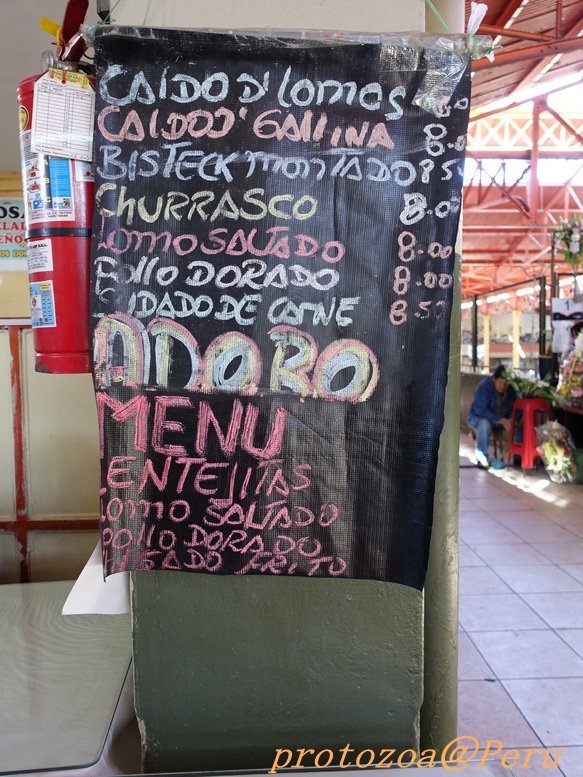 CAIDO D' LOMOS 8.0
CALDO D' GALLINA 8.0
BISTECK MONTADO 8.5
CHURRASCO 8.00
LOMO SALTADO 8.00
POLLO DORADO 8.00
DE CARNE 8.50
ADOBO
MENU
LENTEJITAS
LOMO SALTADO
POLLO DORADO
FRITO
protozoa@Peru